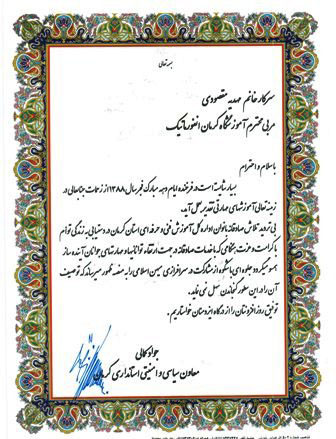 بسمه تعالی
سرکار خانم مهدیه مقصودی
مربی محترم آموزشگاه کرمان انفورماتیک
با سلام و احترام
بسیار شایسته است در فرخنده ایام دهه مبارک فجر سال ۱۳۸۸ از زحمات جنابعالی در
زمینه تعالی آموزشهای مهارتی تقدیر بعمل آید.
بی تردید تلاش صادقانه بانوان اداره کل آموزش فنی و حرفه ای استان کرمان در دستیابی به زندگی توأم
با کرامت و عزت هنگامی که با خدمات صادقانه در جهت ارتقاء توانائیها و مهارتهای جوانان آینده ساز
همسو میگردد جلوه ای باشکوه از مشارکت در سرافرازی میهن اسلامی را به منصه ظهور میرساند که توصیف
آن را در این سطور گنجاندن سهل نمی نماید.
توفیق روز افزونتان را از درگاه ایزد منان خواستاریم.
جواد کمالی
معاون سیاسی و امنیتی استانداری کرمان